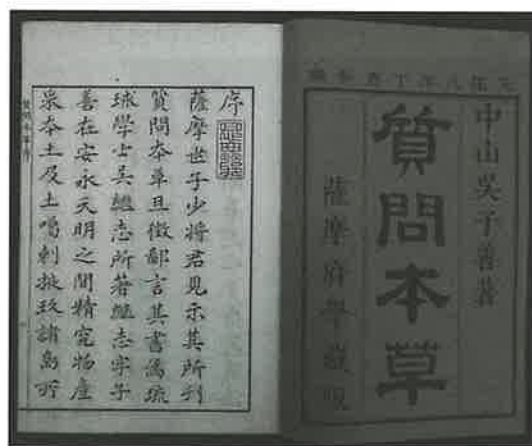 天保八年丁酉
中山吳子善著
質問本草
薩摩府學藏版
序
薩摩世子少將君見示其所刊
質問本草且徵鄙言其書爲琉
球學士吳繼志所著繼志字子
善在安永天明之間精究物產
采本土及土噶剌掖玖諸島所
質問本草序